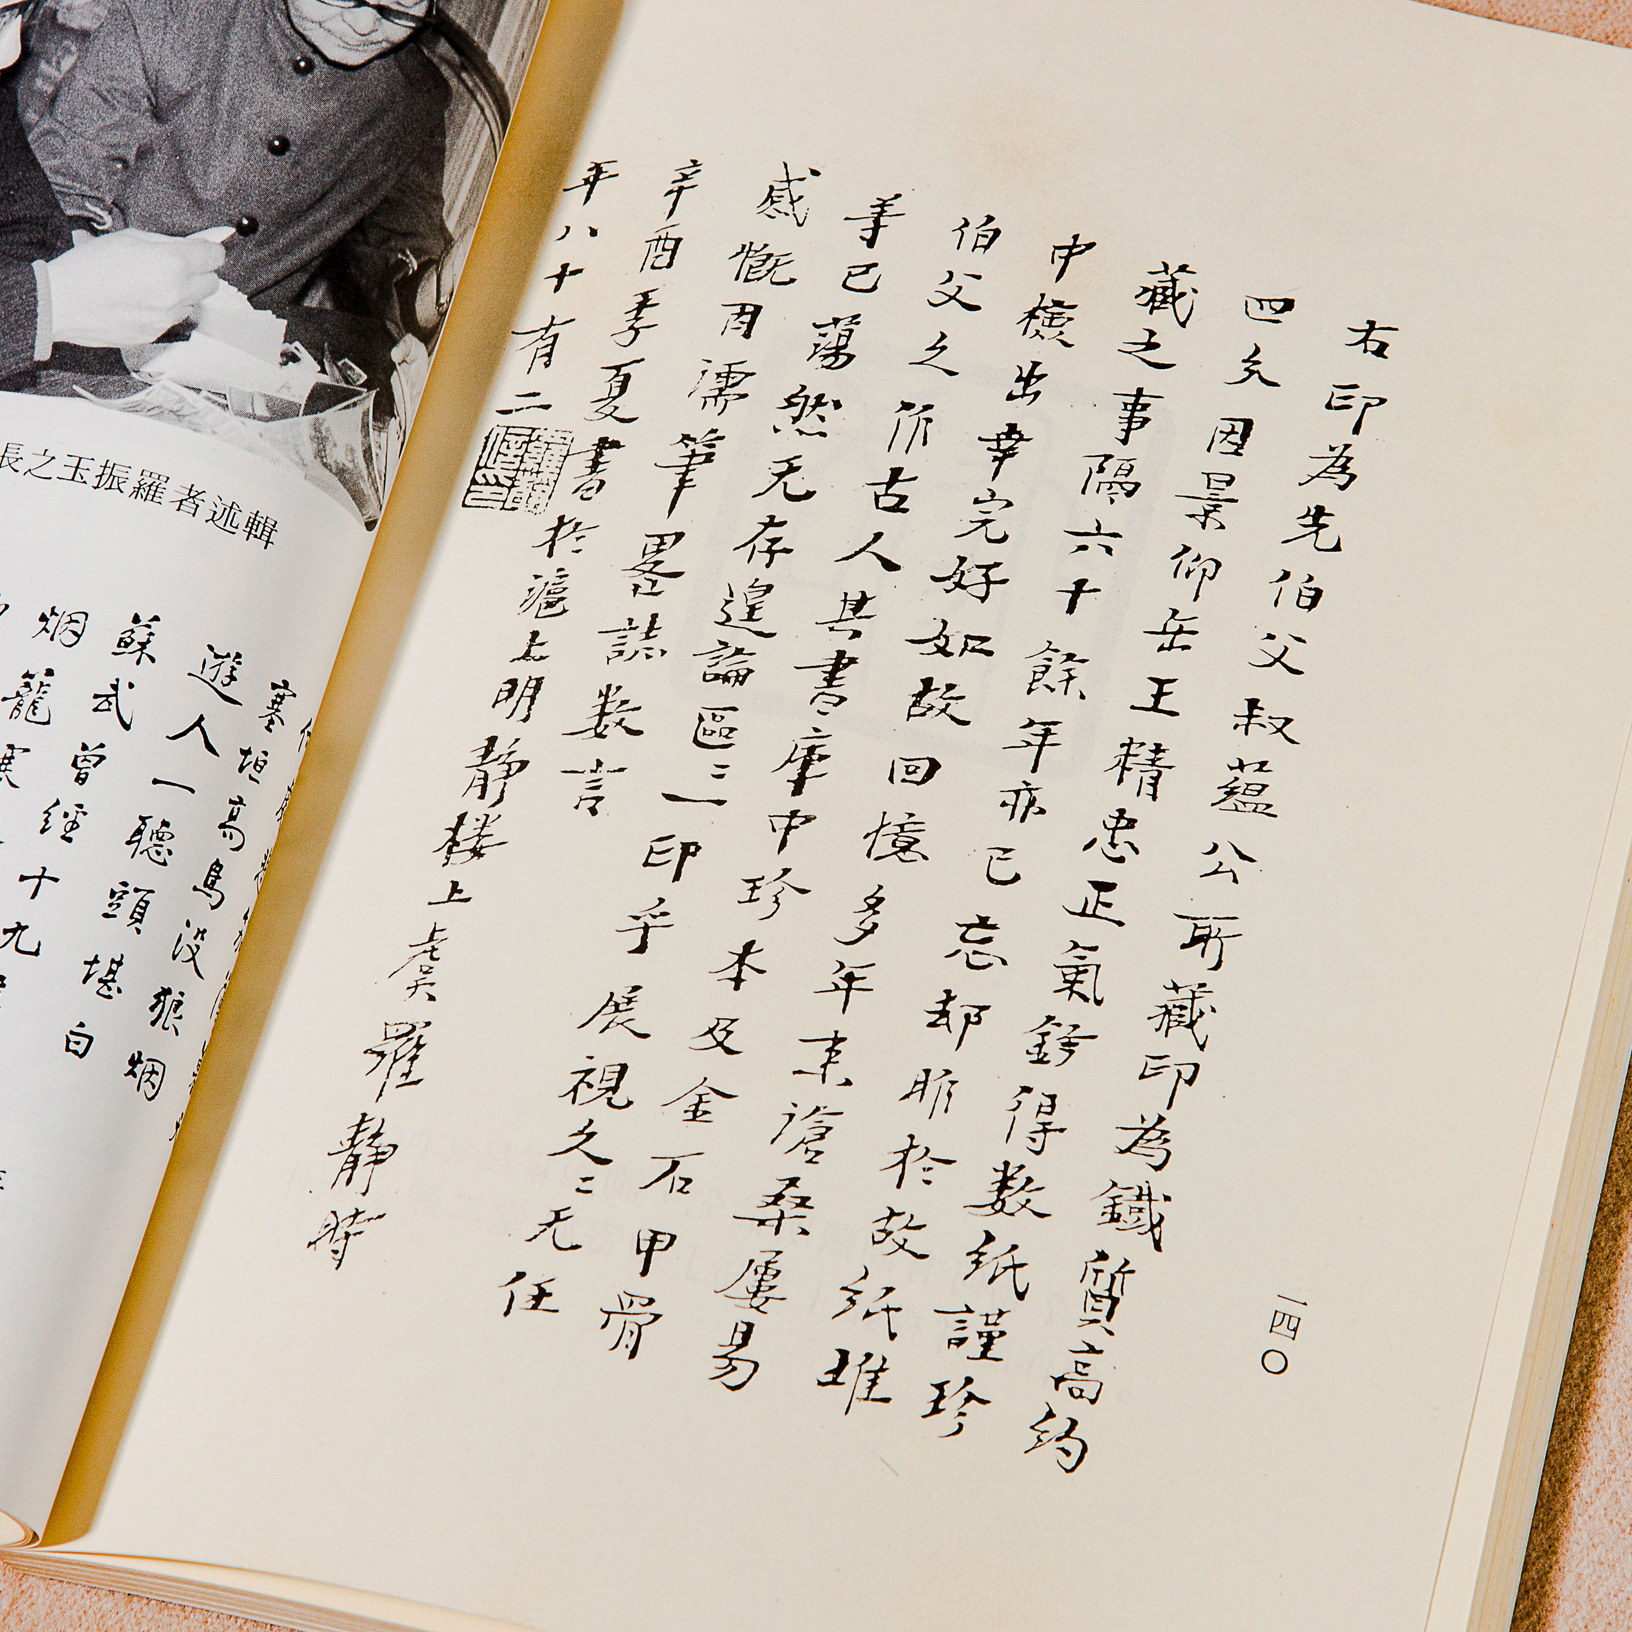 右印為先伯父叔蘊公所藏印為鐵質高約
四分因景仰岳王精忠正氣鈐得数紙謹珍
藏之事隔六十餘年亦已忘却昨於故紙堆
中檢出幸完好如故回憶多年来滄桑屢易
伯父久作古人其書庫中珍本及金石甲骨
等已蕩然无存遑論區〻一印乎展視久〻无任
感慨因濡筆畧誌数言
辛酉季夏書於滬上明静楼上虞羅静時
年八十有二
一四〇
輯述者羅振玉之長
塞垣高鳥没狼烟
遊人一聽頭堪白
蘇武曾經十九
烟籠寒